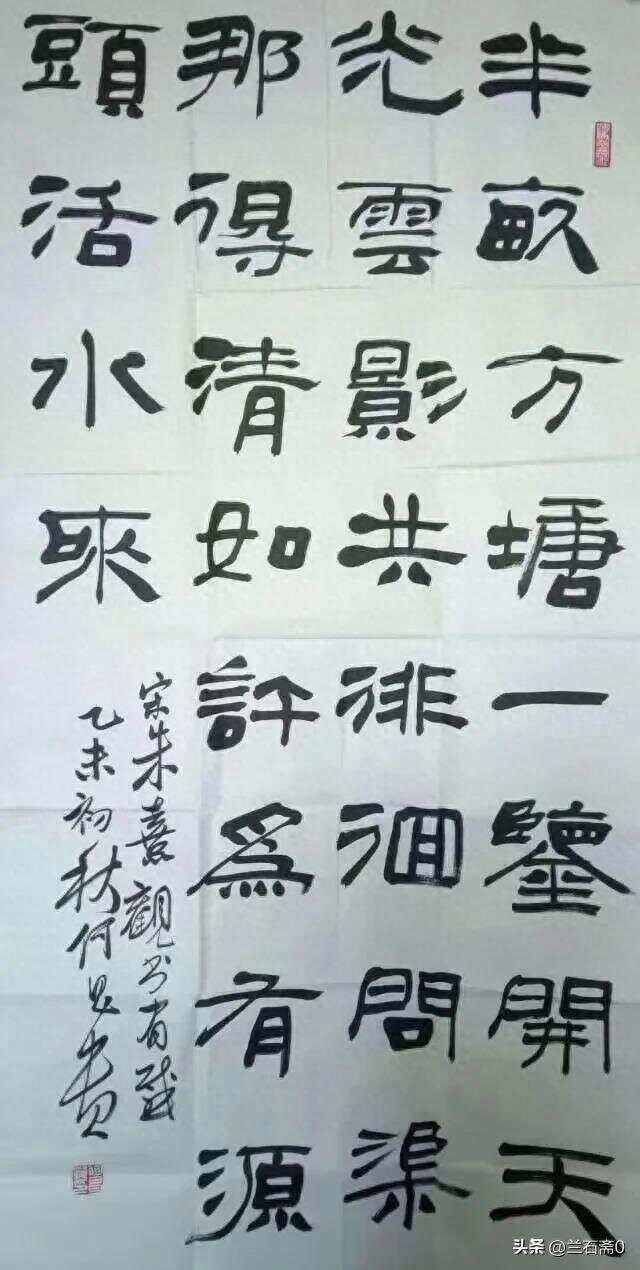 半畝方塘一鑒開天
光雲影共徘徊問渠
那得清如許爲有源
頭活水來
宋朱熹觀书有感
乙未初秋何
头条 @兰石斋0